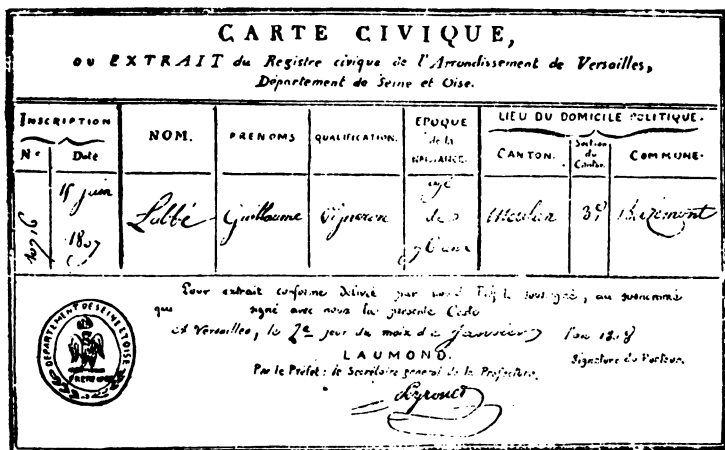 CARTE CIVIQUE,
OU EXTRAIT du Registre civique de l'Arrondissement de Versailles,
Département de Seine et Oise.
INSCRIPTION
No
Date
NOM.
PRENOMS
QUALIFICATION.
EPOQUE
de la
NAISSANCE.
LIEU DU DOMICILE POLITIQUE.
CANTON.
Section
du
Canton.
COMMUNE.
15 juin
1807
Labbé
Guillaume
Vigneron
agé
de
Meulan
3e
Bazemont
Pour extrait conforme délivré par nous Préfet soussigné, au susnommé
que signé avec nous la présente Carte
A Versailles, le 2e jour du mois de Janvier l'an 1808
LAUMOND.
Signature du Porteur.
Par le Préfet: le Secrétaire general de la Préfecture.
Peyronet
DEPARTEMENT DE SEINE ET OISE